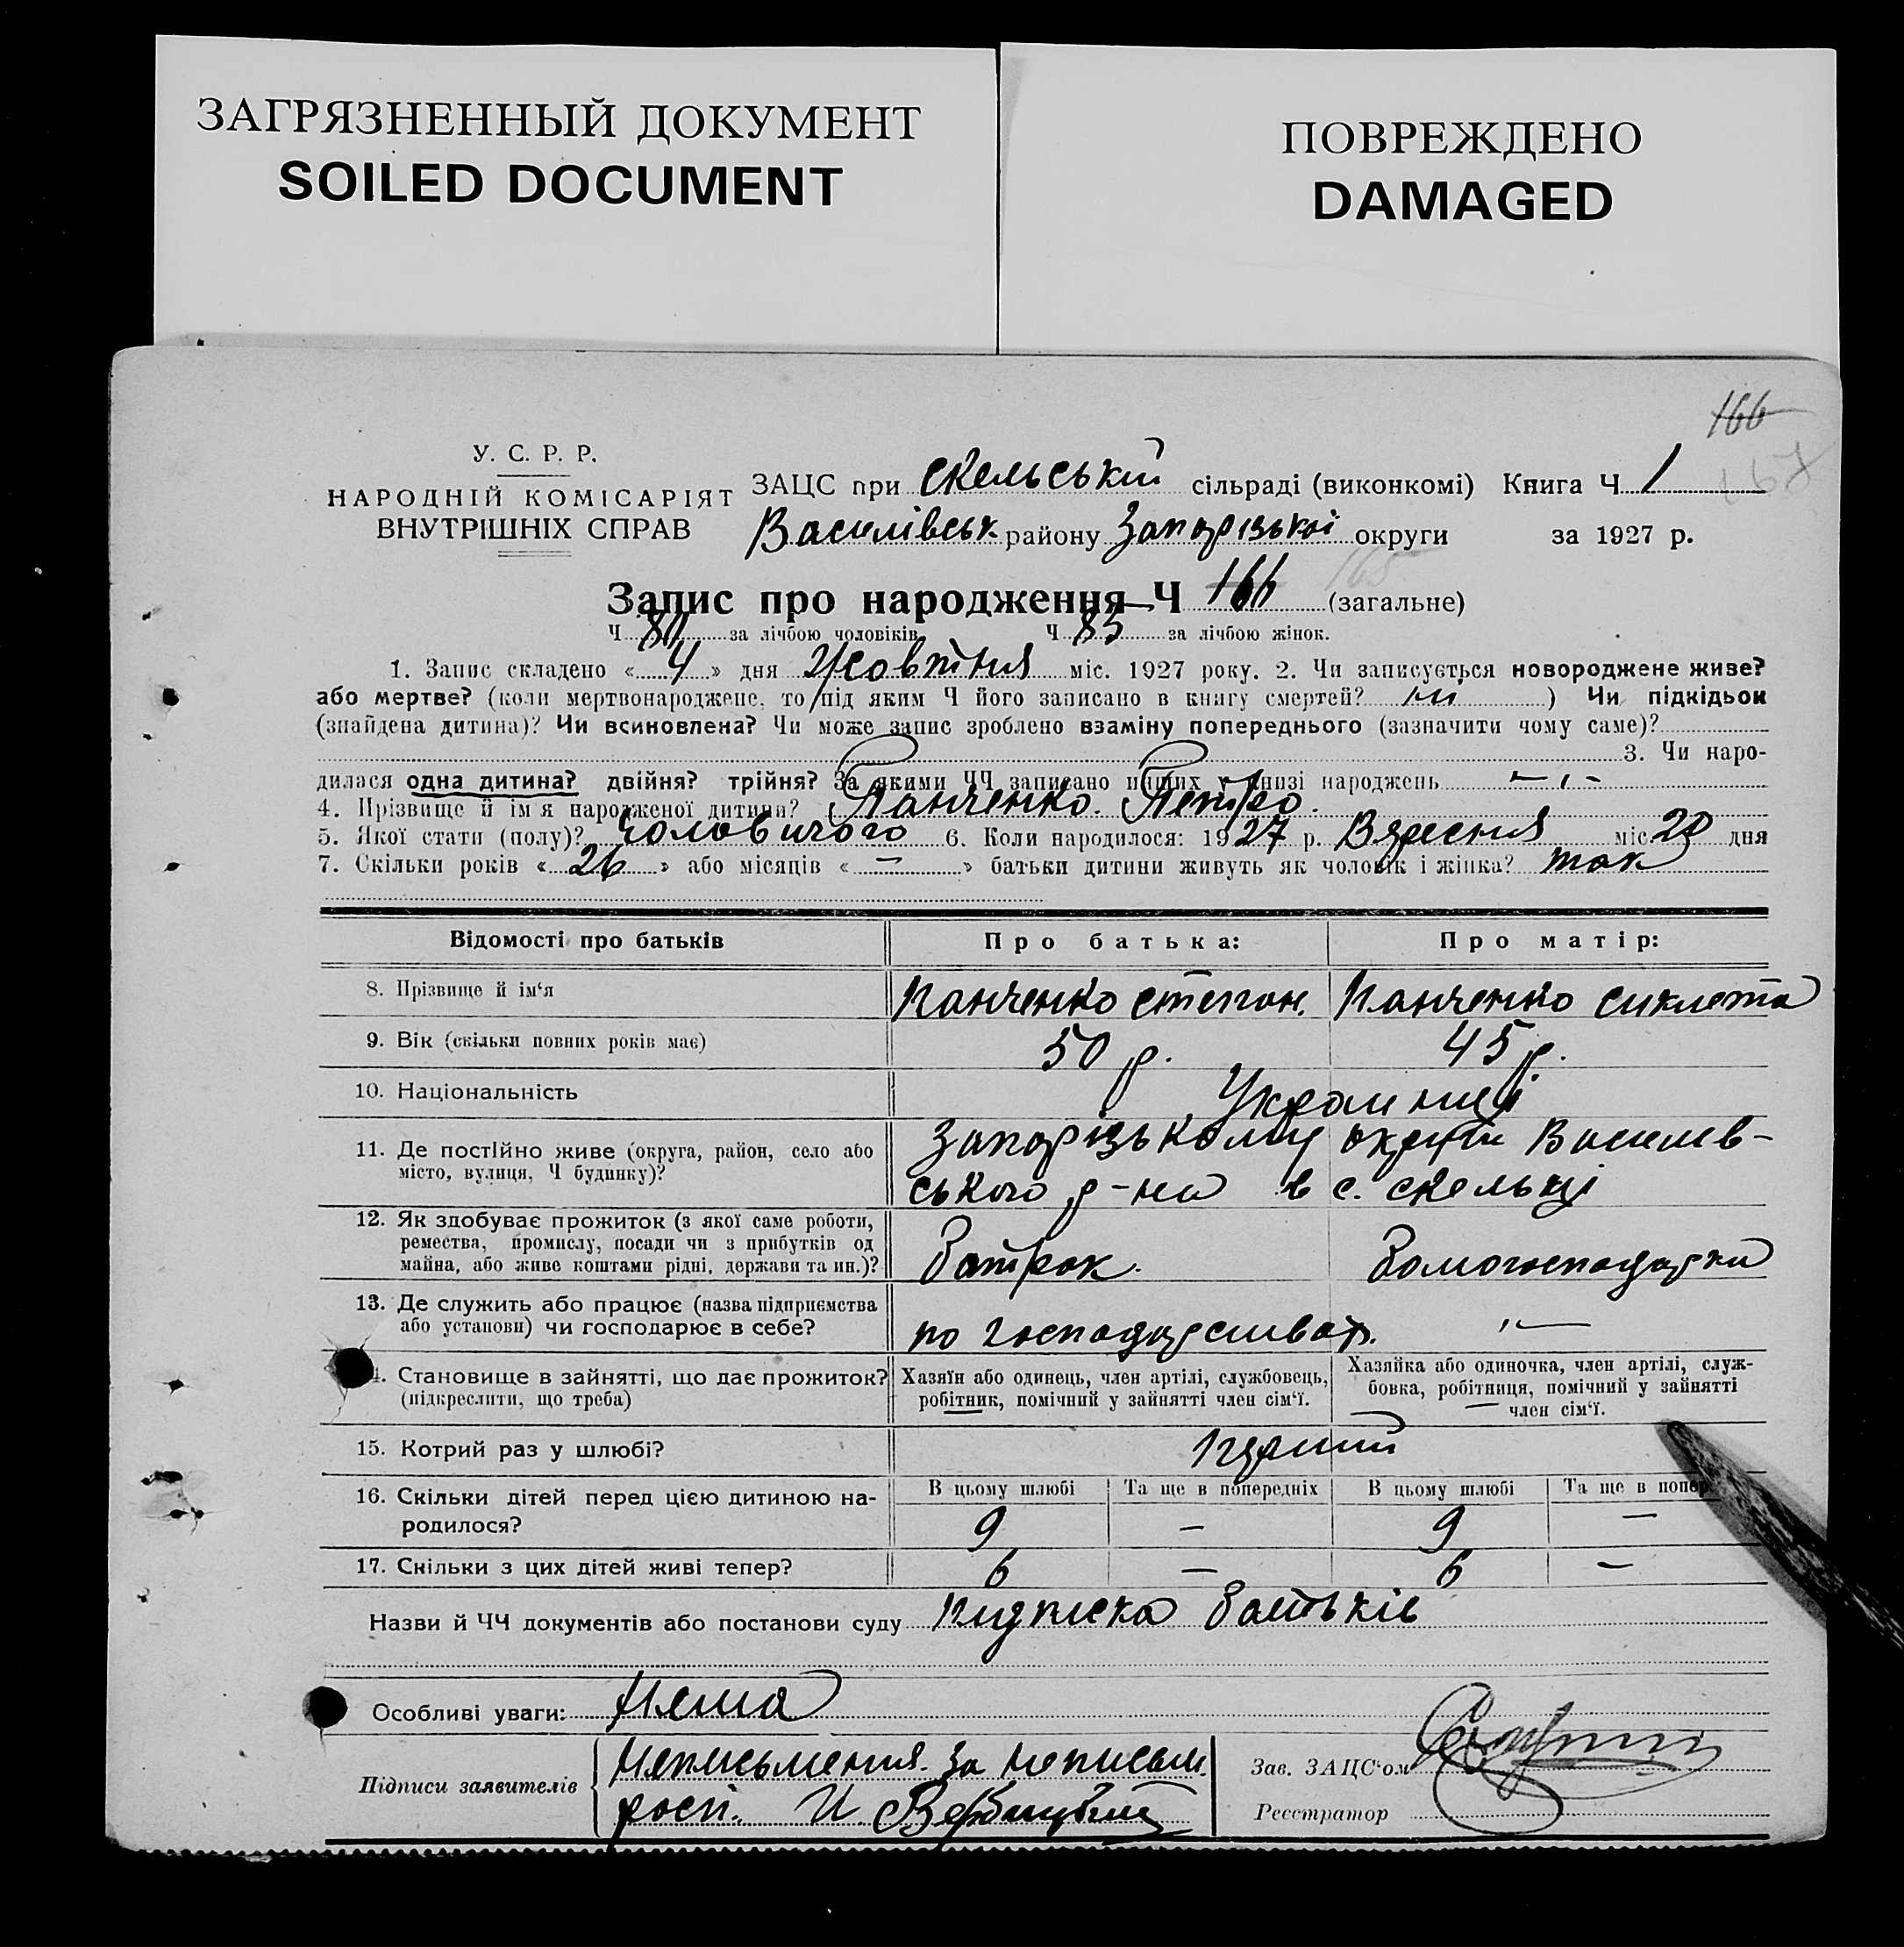 ЗАГРЯЗНЕННЫЙ ДОКУМЕНТ
SOILED DOCUMENT
ПОВРЕЖДЕНО
DAMAGED
166
У. С. Р. Р.
НАРОДНІЙ КОМІСАРІЯТ
ВНУТРІШНІХ СПРАВ
ЗАЦС при Скельській сільраді (виконкомі) Книга Ч 1
Василівськ. району Запорізької округи за 1927 р.
Запис про народження—Ч 166 (загальне)
Ч за лічбою чоловіків Ч 85 за лічбою жінок.
1. Запис складено « 4 » дня Жовтня міс. 1927 року. 2. Чи записується новороджене живе?
або мертве? (коли мертвонароджене, то під яким Ч його записано в книгу смертей? ні ) Чи підкідьок
(знайдена дитина)? Чи всиновлена? Чи може запис зроблено взаміну попереднього (зазначити чому саме)?
3. Чи наро-
дилася одна дитина? двійня? трійня? За якими ЧЧ записано инших у книзі народжень — „ —
4. Прізвище й ім'я народженої дитини? Панченко. Петро.
5. Якої стати (полу)? Чоловичого 6. Коли народилося: 1927 р. Вересня міс. 20 дня
7. Скільки років « 26 » або місяців « — » батьки дитини живуть як чоловік і жінка? так
Відомості про батьків Про батька: Про матір:
8. Прізвище й ім'я Панченко Степан. Панченко Сиклета
9. Вік (скільки повних років має) 50 р. 45 р.
10. Національність Українці
11. Де постійно живе (округа, район, село або
місто, вулиця, Ч будинку)?
Запорізькому округи Василев-
ського р-на в с. Скельці
12. Як здобуває прожиток (з якої саме роботи,
ремества, промислу, посади чи з прибутків од
майна, або живе коштами рідні, держави та ин.)?
Батрак. Домогосподарка
13. Де служить або працює (назва підприємства
або установи) чи господарює в себе?
по господарствах. „ —
14. Становище в зайнятті, що дає прожиток?
(підкреслити, що треба)
Хазяїн або одинець, член артілі, службовець,
робітник, помічний у зайнятті член сім'ї.
Хазяйка або одиночка, член артілі, служ-
бовка, робітниця, помічний у зайнятті
член сім'ї.
15. Котрий раз у шлюбі? Перший
16. Скільки дітей перед цією дитиною на-
родилося?
В цьому шлюбі Та ще в попередніх В цьому шлюбі Та ще в попер
9 — 9 —
17. Скільки з цих дітей живі тепер? 6 — 6 —
Назви й ЧЧ документів або постанови суду Підписка батьків
Особливі уваги: Нема
Підписи заявителів
Неписьмення. За неписьм.
росп. И. Вербицький
Зав. ЗАЦС'ом
Реєстратор